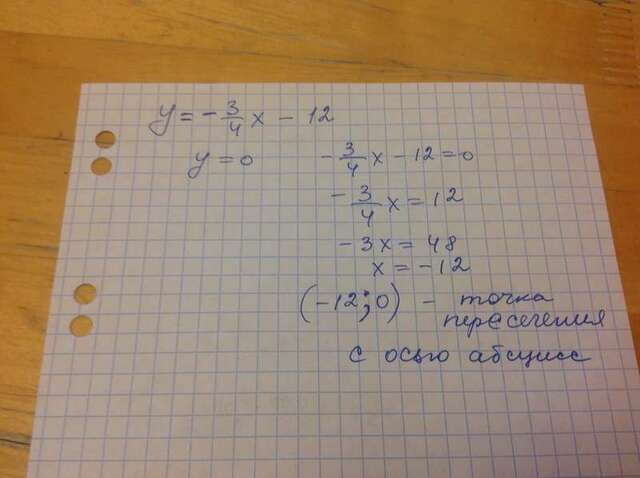 y = - 3/4 x - 12
y = 0 - 3/4 x - 12 = 0
- 3/4 x = 12
- 3x = 48
x = -12
(-12; 0) - точка
пересечения
с осью абсцисс